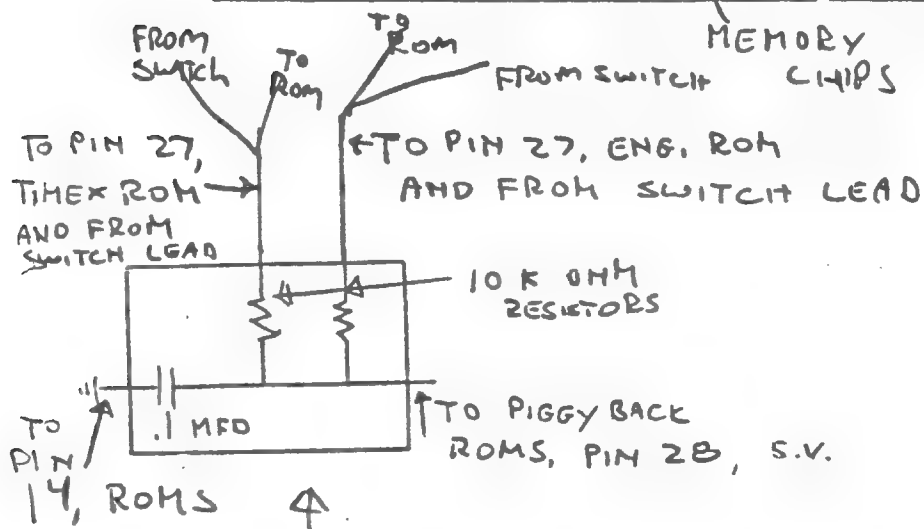 FROM
SWITCH
TO
ROM
TO
ROM
MEMORY
CHIPS
FROM SWITCH
TO PIN 27,
TIMEX ROM
AND FROM
SWITCH LEAD
TO PIN 27, ENG. ROM
AND FROM SWITCH LEAD
10 K OHM
RESISTORS
.1 MFD
TO
PIN
14, ROMS
TO PIGGYBACK
ROMS, PIN 28, 5.V.